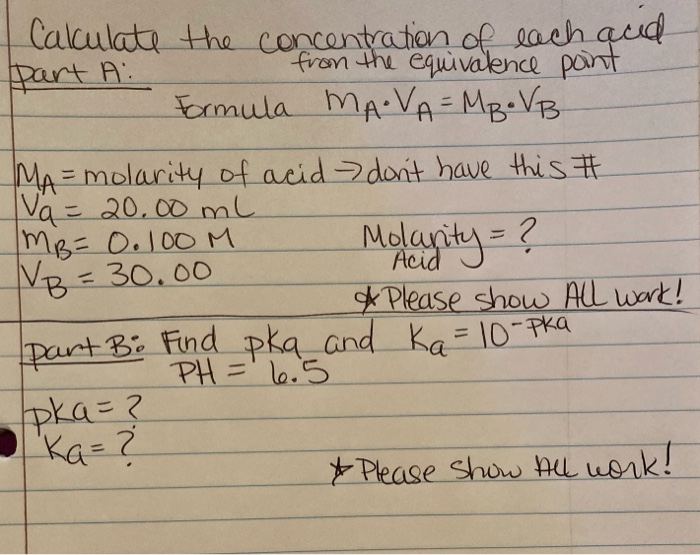 Calculate the concentration of each acid
from the equivalence point
Part A:
Formula MA·VA = MB·VB
MA = molarity of acid → don't have this #
Va = 20.00 mL
MB = 0.100 M
Molarity = ?
Acid
VB = 30.00
* Please show All work!
Part B: Find pka and Ka = 10-pka
PH = 6.5
pka = ?
Ka = ?
* Please show All work!